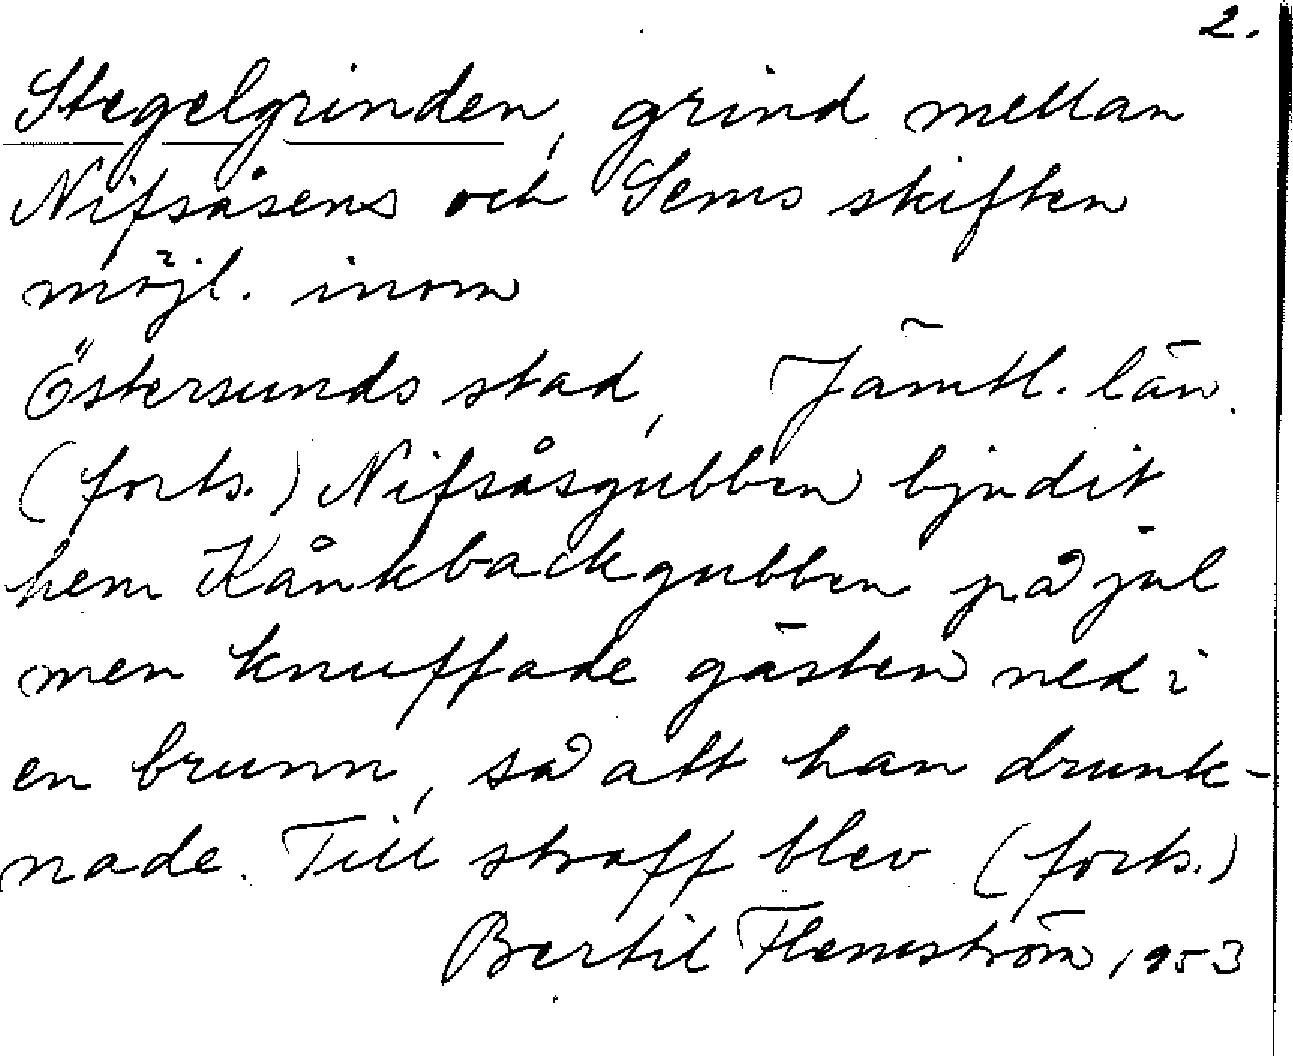 2.
Stegelgrinden, grind mellan
Nifsåsens och Sems skiften
möjl. inom
Östersunds stad, Jämtl. län.
(forts.) Nifsåsgubben bjudit
hem Kånkbackgubben på jul
men knuffade gästen ned i
en brunn, så att han drunk-
nade. Till straff blev (forts.)
Bertil Flemström, 1953